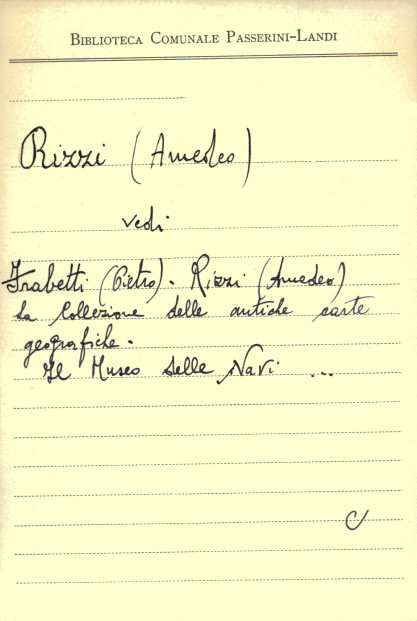 BIBLIOTECA COMUNALE PASSERINI-LANDI
Rizzi (Amedeo)
vedi
Frabetti (Pietro). Rizzi (Amedeo)
La Collezione delle antiche carte
geografiche.
Il Museo delle Navi ...
C